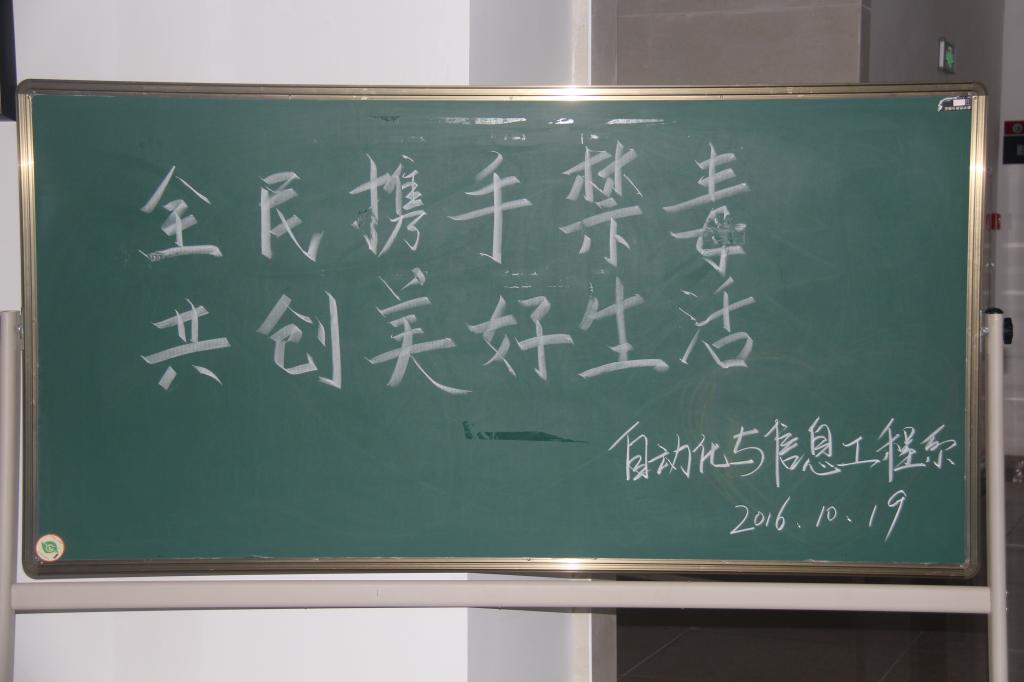 全民携手禁毒
共创美好生活
自动化与信息工程系
2016.10.19